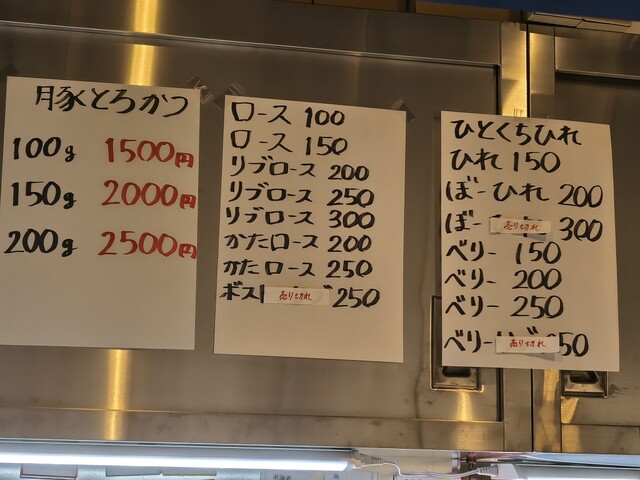 豚とろかつ
100g 1500円
150g 2000円
200g 2500円
ロース 100
ロース 150
リブロース 200
リブロース 250
リブロース 300
かたロース 200
かたロース 250
ボスト 売り切れ 250
ひとくちひれ
ひれ 150
ぼーひれ 200
ぼー 売り切れ 300
べリー 150
べリー 200
べリー 250
べリー 売り切れ 50